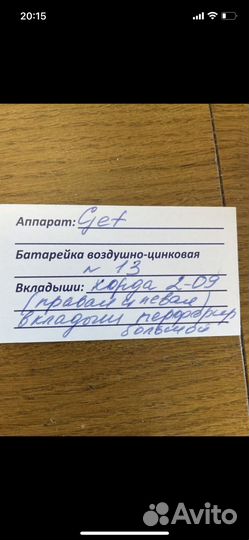 20:15
Аппарат: Get
Батарейка воздушно-цинковая
№ 13
Вкладыши: хорда 2-09
(правая и левая)
вкладыш перфорир
большой
Avito